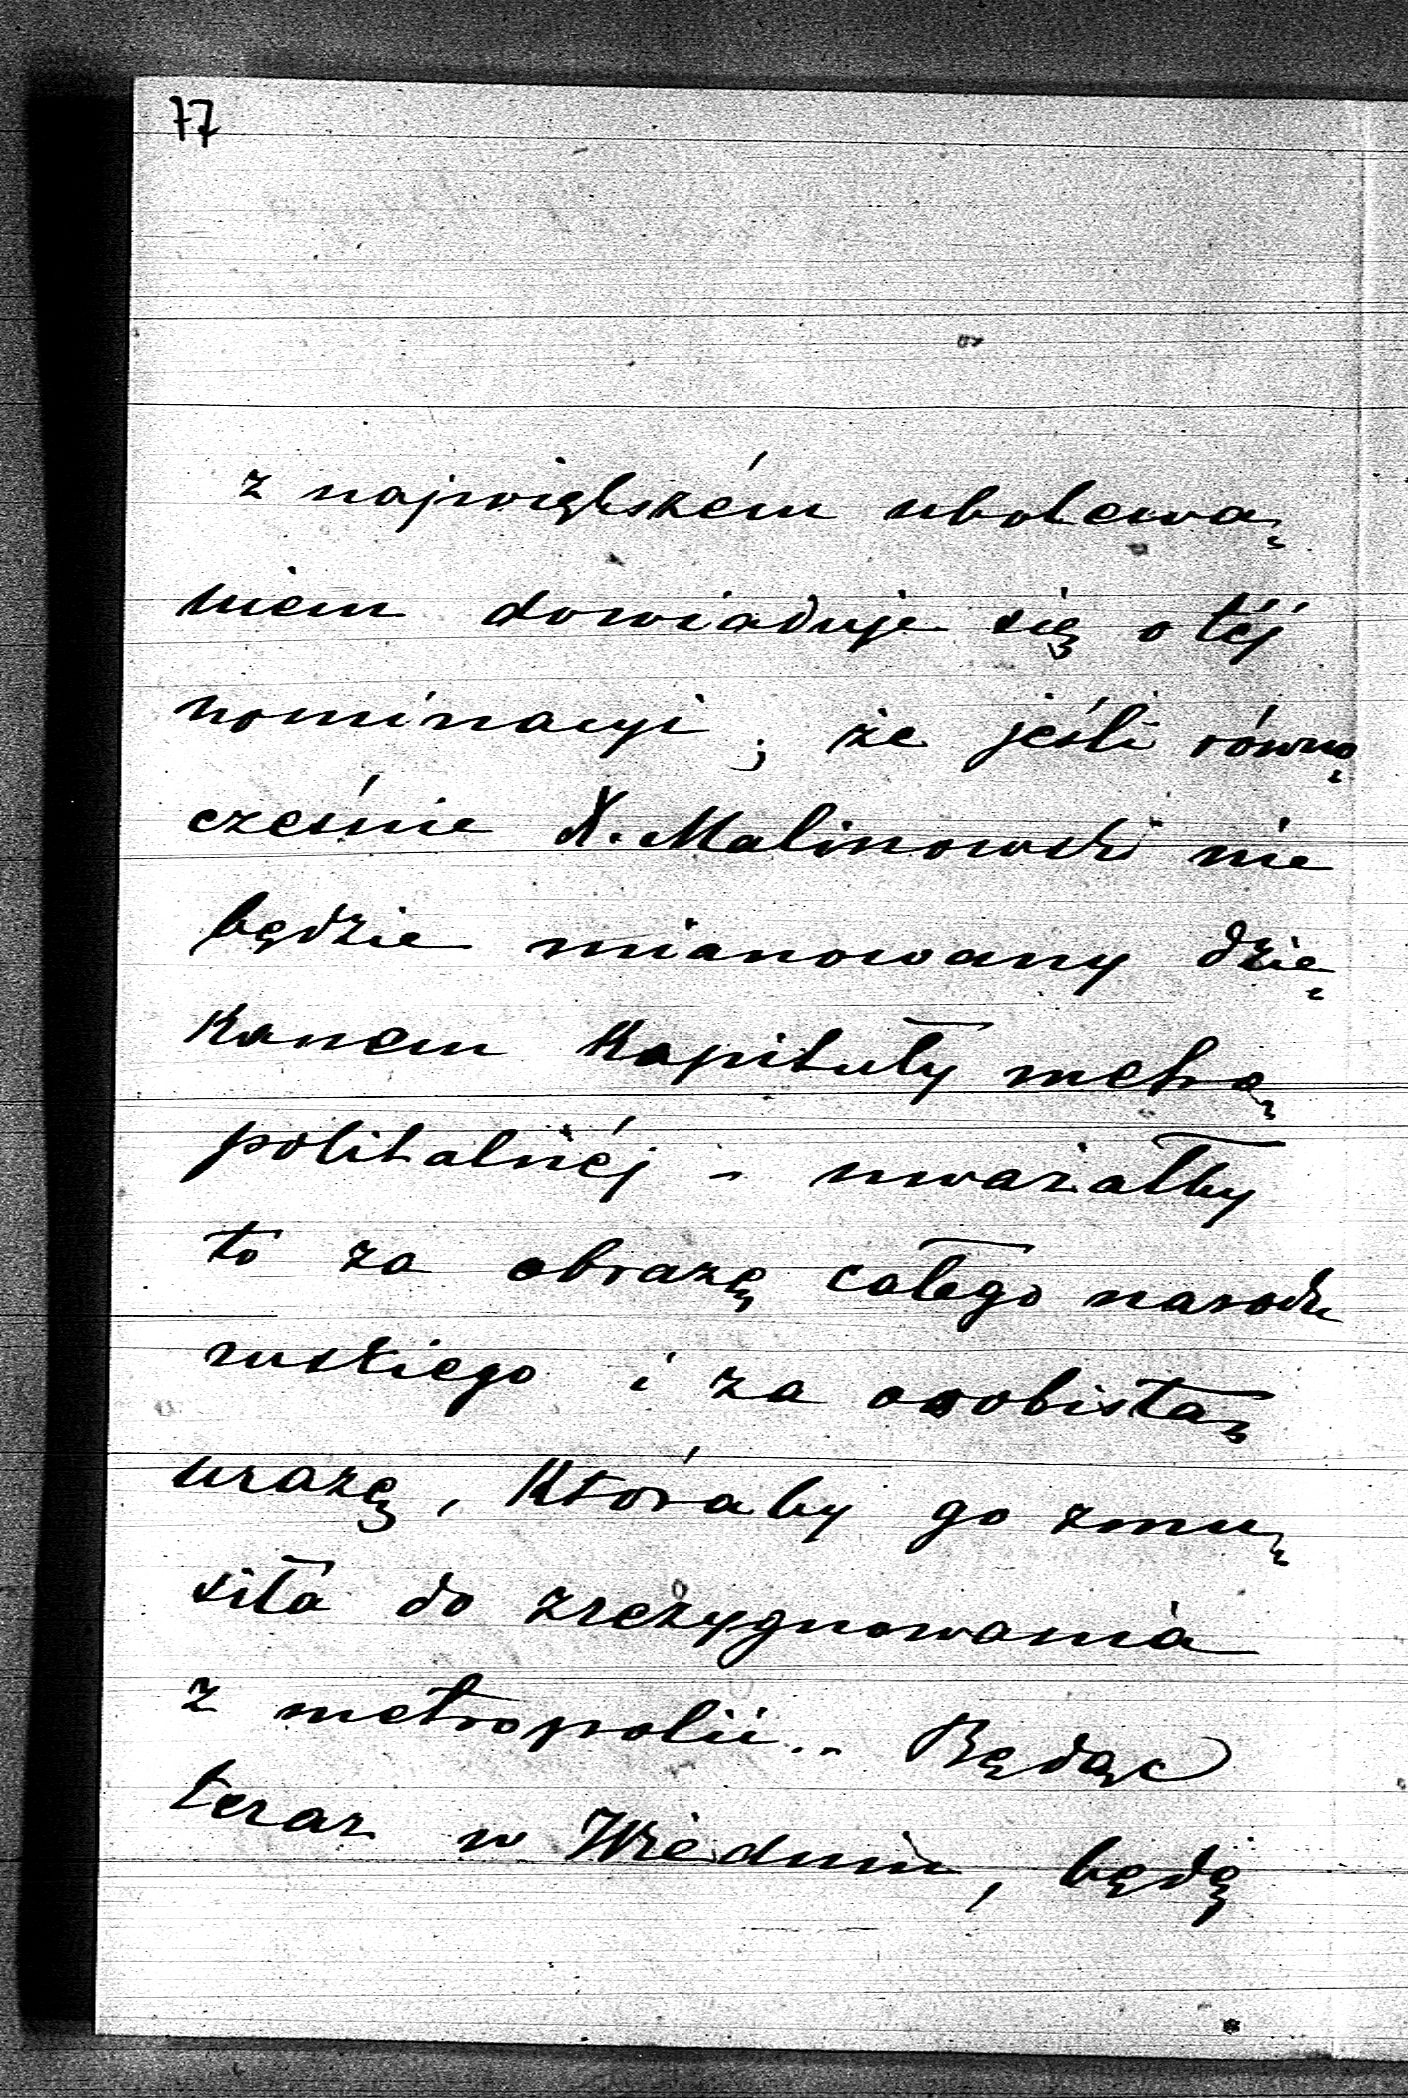 77
z największém ubolewa„
niem dowiaduje się o téj
nominacyi; że jeśli równo„
cześnie X. Malinowski nie
będzie mianowany dzie„
kanem Kapituły metro„
politalnéj - uważałby
to za obrazę całego narodu
ruskiego i za osobistą
urazę, któraby go zmu„
siła do zrezygnowania
z metropolii.. Będąc
teraz w Wiedniu, będę